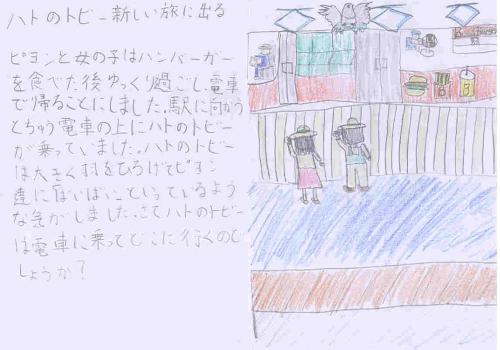 ハトのトビー新しい旅に出る
ピヨンと女の子はハンバーガー
を食べた後ゆっくり過ごし、電車
で帰ることにしました。駅に向かう
とちゅう電車の上にハトのトビー
が乗っていました。ハトのトビー
は大きく羽をひろげてピヨン
達に「ばいばい」といっているよう
な気がしました。さてハトのトビー
は電車に乗ってどこに行くので
しょうか?